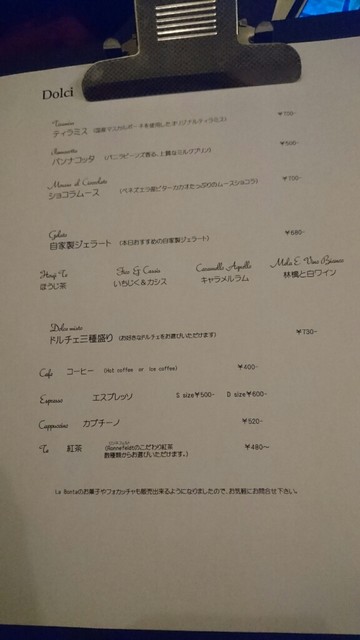 Dolci
Tiramisu
ティラミス (国産マスカルポーネを使用したオリジナルティラミス) ¥750-
Pannacotta
パンナコッタ (バニラビーンズ香る、上質なミルクプリン) ¥600-
Mousse al Cioccolato
ショコラムース (ベネズエラ産ビターカカオたっぷりのムースショコラ) ¥700-
Gelato
自家製ジェラート (本日おすすめの自家製ジェラート) ¥680-
Houji Te Fico & Cassis Caramello Mela E Vino Bianco
ほうじ茶 いちじく&カシス キャラメルラム 林檎と白ワイン
Dolce misto
ドルチェ三種盛り (お好きなドルチェをお選びいただけます) ¥730-
Cafe コーヒー (Hot coffee or Ice coffee) ¥400-
Espresso エスプレッソ S size¥500- D size¥600-
Cappuccino カプチーノ ¥520-
Te 紅茶 (Ronnefeldtのこだわり紅茶 ¥480〜
数種類からお選びいただけます。)
La Bontaのお菓子やフォカッチャも販売出来るようになりましたので、お気軽にお問合せ下さい。